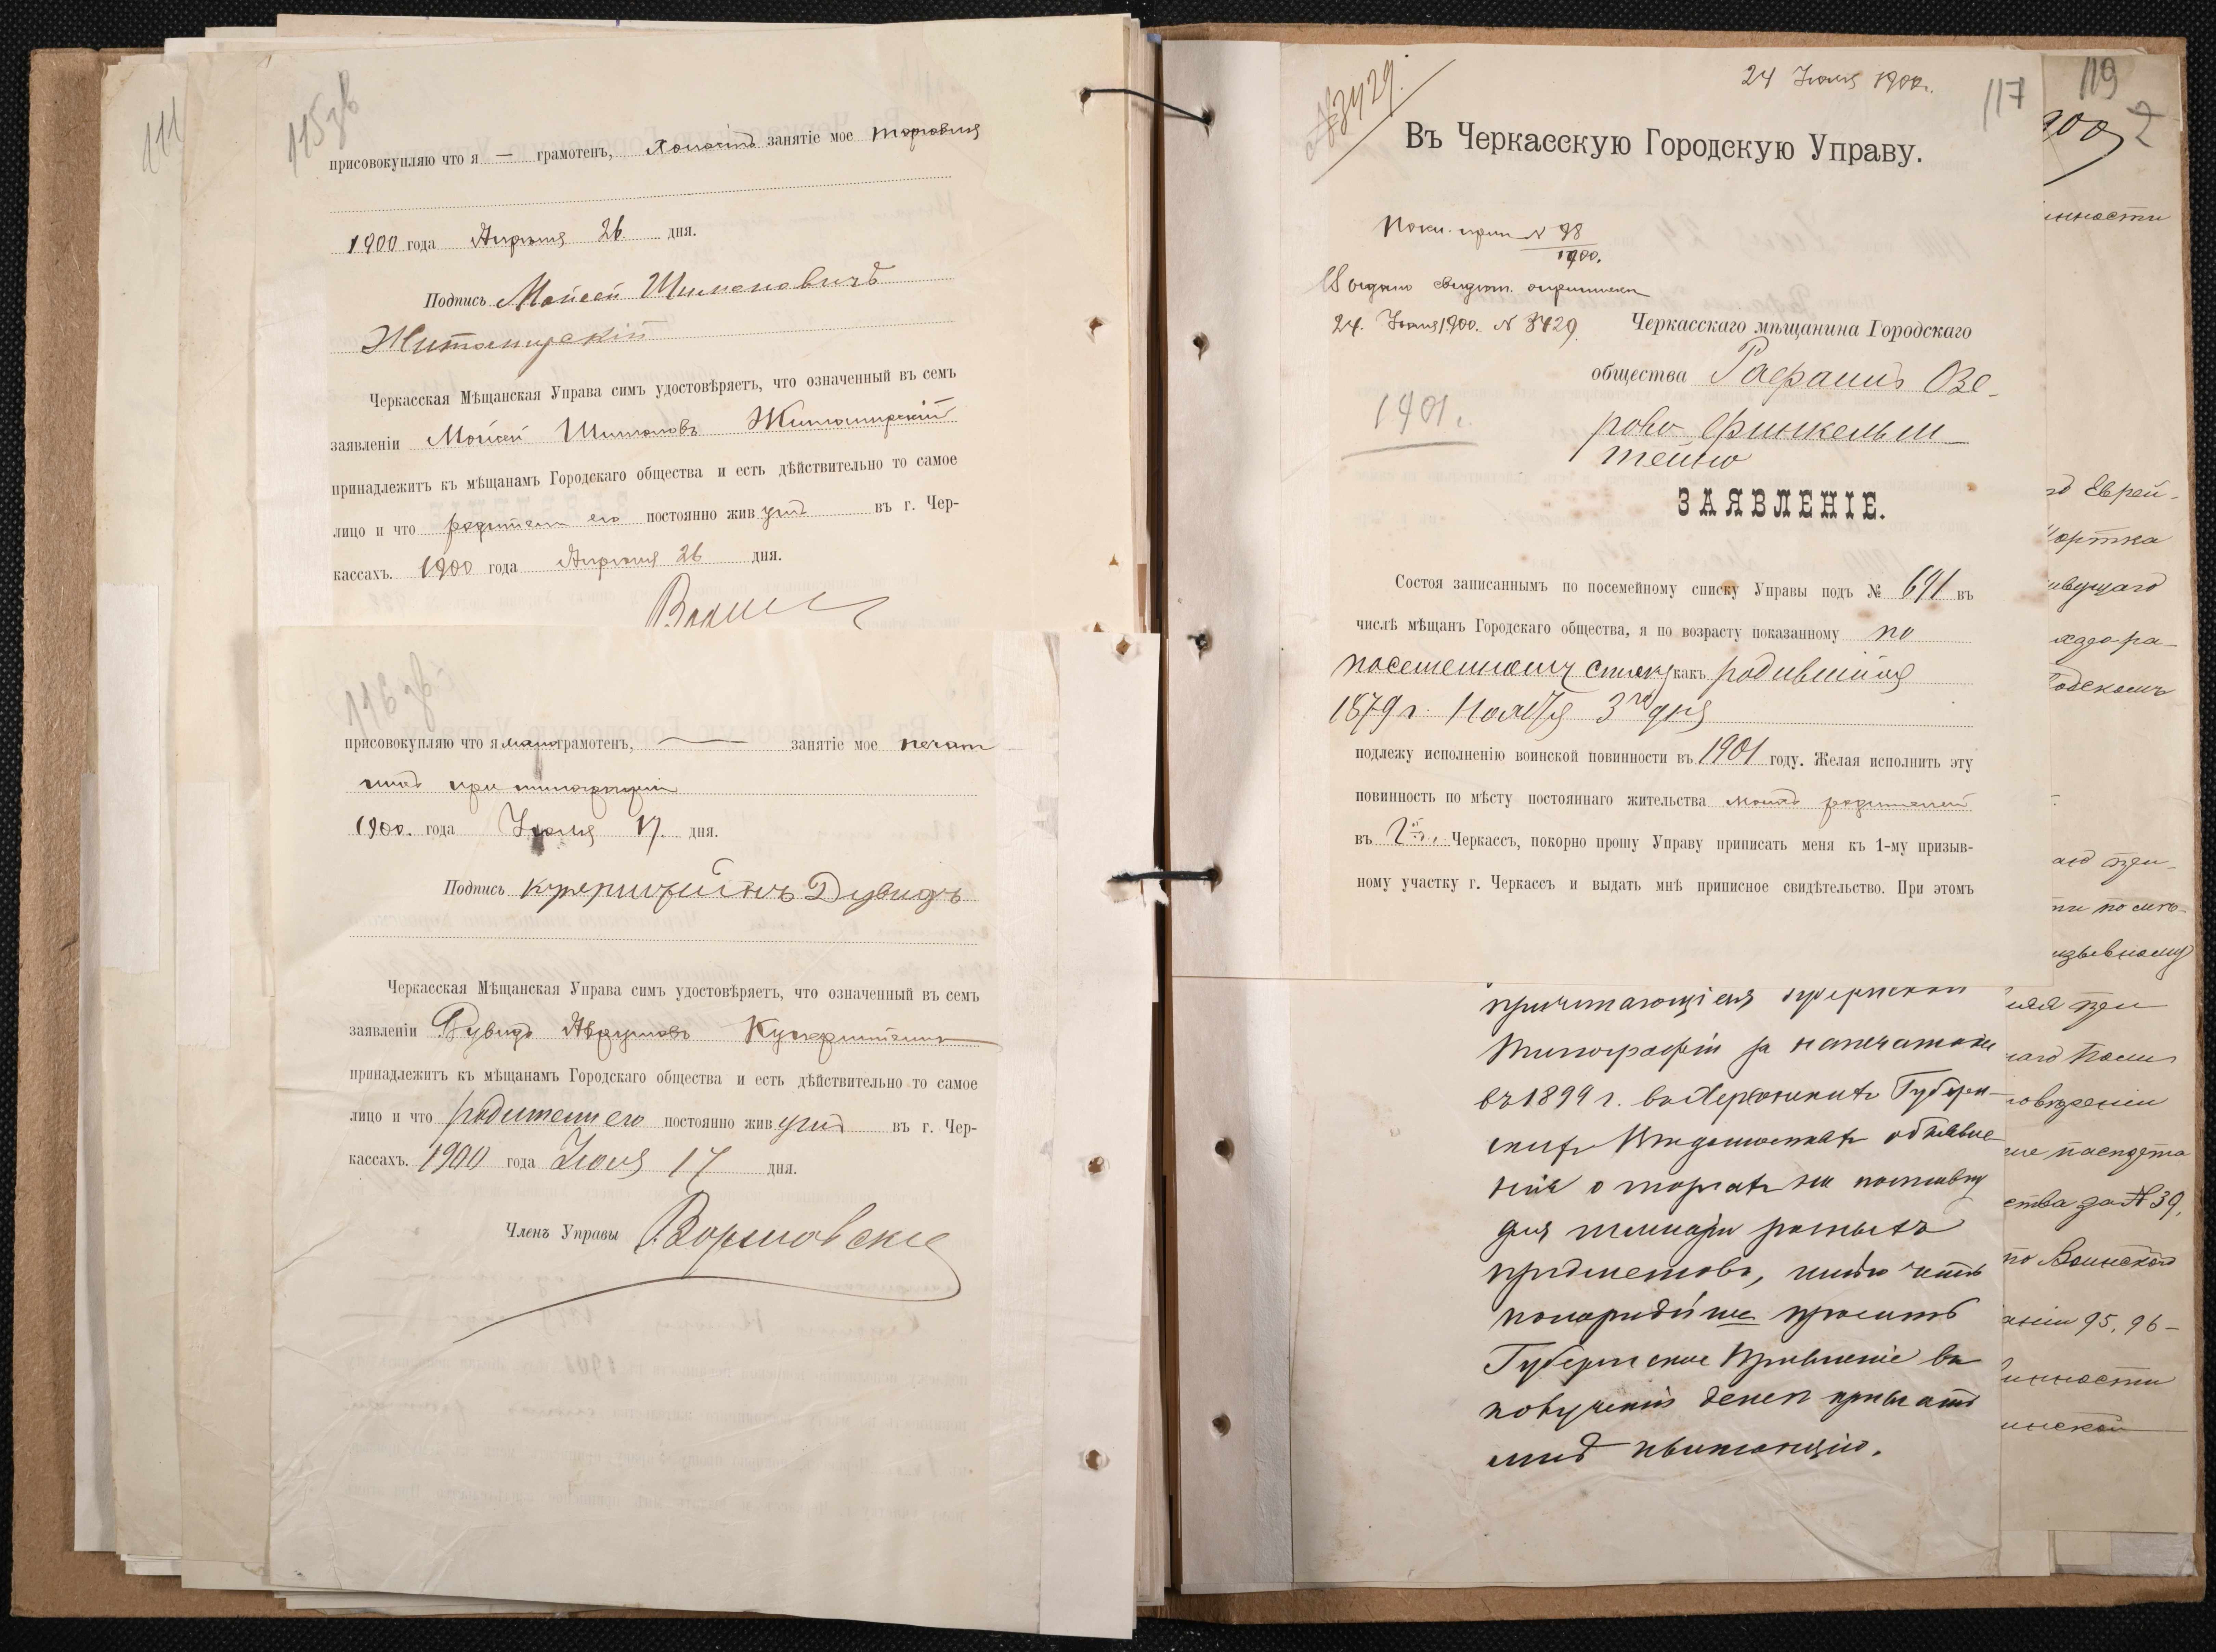 111
115 зв
присовокупляю что я — грамотенъ, холостъ занятіе мое торговля
1900 года Апрѣля 26 дня.
Подпись Мойсей Шимоновичъ
Житомирскій
Черкасская Мѣщанская Управа симъ удостовѣряетъ, что означенный въ семъ
заявленіи Мойсей Шимоновъ Житомирскій
принадлежитъ къ мѣщанамъ Городскаго общества и есть дѣйствительно то самое
лицо и что родители его постоянно живутъ въ г. Чер-
кассахъ. 1900 года Апрѣля 26 дня.
116 зв
присовокупляю что я мало грамотенъ, — занятіе мое печат
никъ при типографіи
1900. года Іюля 17. дня.
Подпись Купершteйнъ Дувидъ
Черкасская Мѣщанская Управа симъ удостовѣряетъ, что означенный въ семъ
заявленіи Дувидъ Аврумовъ Куперштейнъ
принадлежитъ къ мѣщанамъ Городскаго общества и есть дѣйствительно то самое
лицо и что родители его постоянно живутъ въ г. Чер-
кассахъ. 1900 года Іюля 17 дня.
Членъ Управы
№ 3429.
24 Іюля 1900 г.
117
Въ Черкасскую Городскую Управу.
№ 98
1900.
Выдано свидѣт. о припискѣ
24. Іюля 1900. № 3429.
1901 г.
Черкасскаго мѣщанина Городскаго
общества Рафаилъ Озе-
рово Финкельш-
тейнъ
ЗАЯВЛЕНІЕ.
Состоя записаннымъ по посемейному списку Управы подъ № 691 въ
числѣ мѣщанъ Городскаго общества, я по возрасту показанному по
посемейному списку какъ родившійся
1879 г. Ноября 3го дня
подлежу исполненію воинской повинности въ 1901 году. Желая исполнить эту
повинность по мѣсту постояннаго жительства моихъ родителей
въ г. Черкассъ, покорно прошу Управу приписать меня къ 1-му призыв-
ному участку г. Черкассъ и выдать мнѣ приписное свидѣтельство. При этомъ
причитающіеся губернской
типографіи за напечатаніе
въ 1899 г. въ Херсонскихъ Губерн-
скихъ Вѣдомостяхъ объявле-
нія о торгахъ на поставку
для разныхъ
предметовъ, имѣю честь
покорнѣйше просить
Губернское Правленіе въ
полученіи денегъ прислать
квитанцію.
119
2
900
нности
Еврей-
ортка
ивущаго
по мѣ-
изывному
ства за № 39,
по Воинской
95, 96-
инности